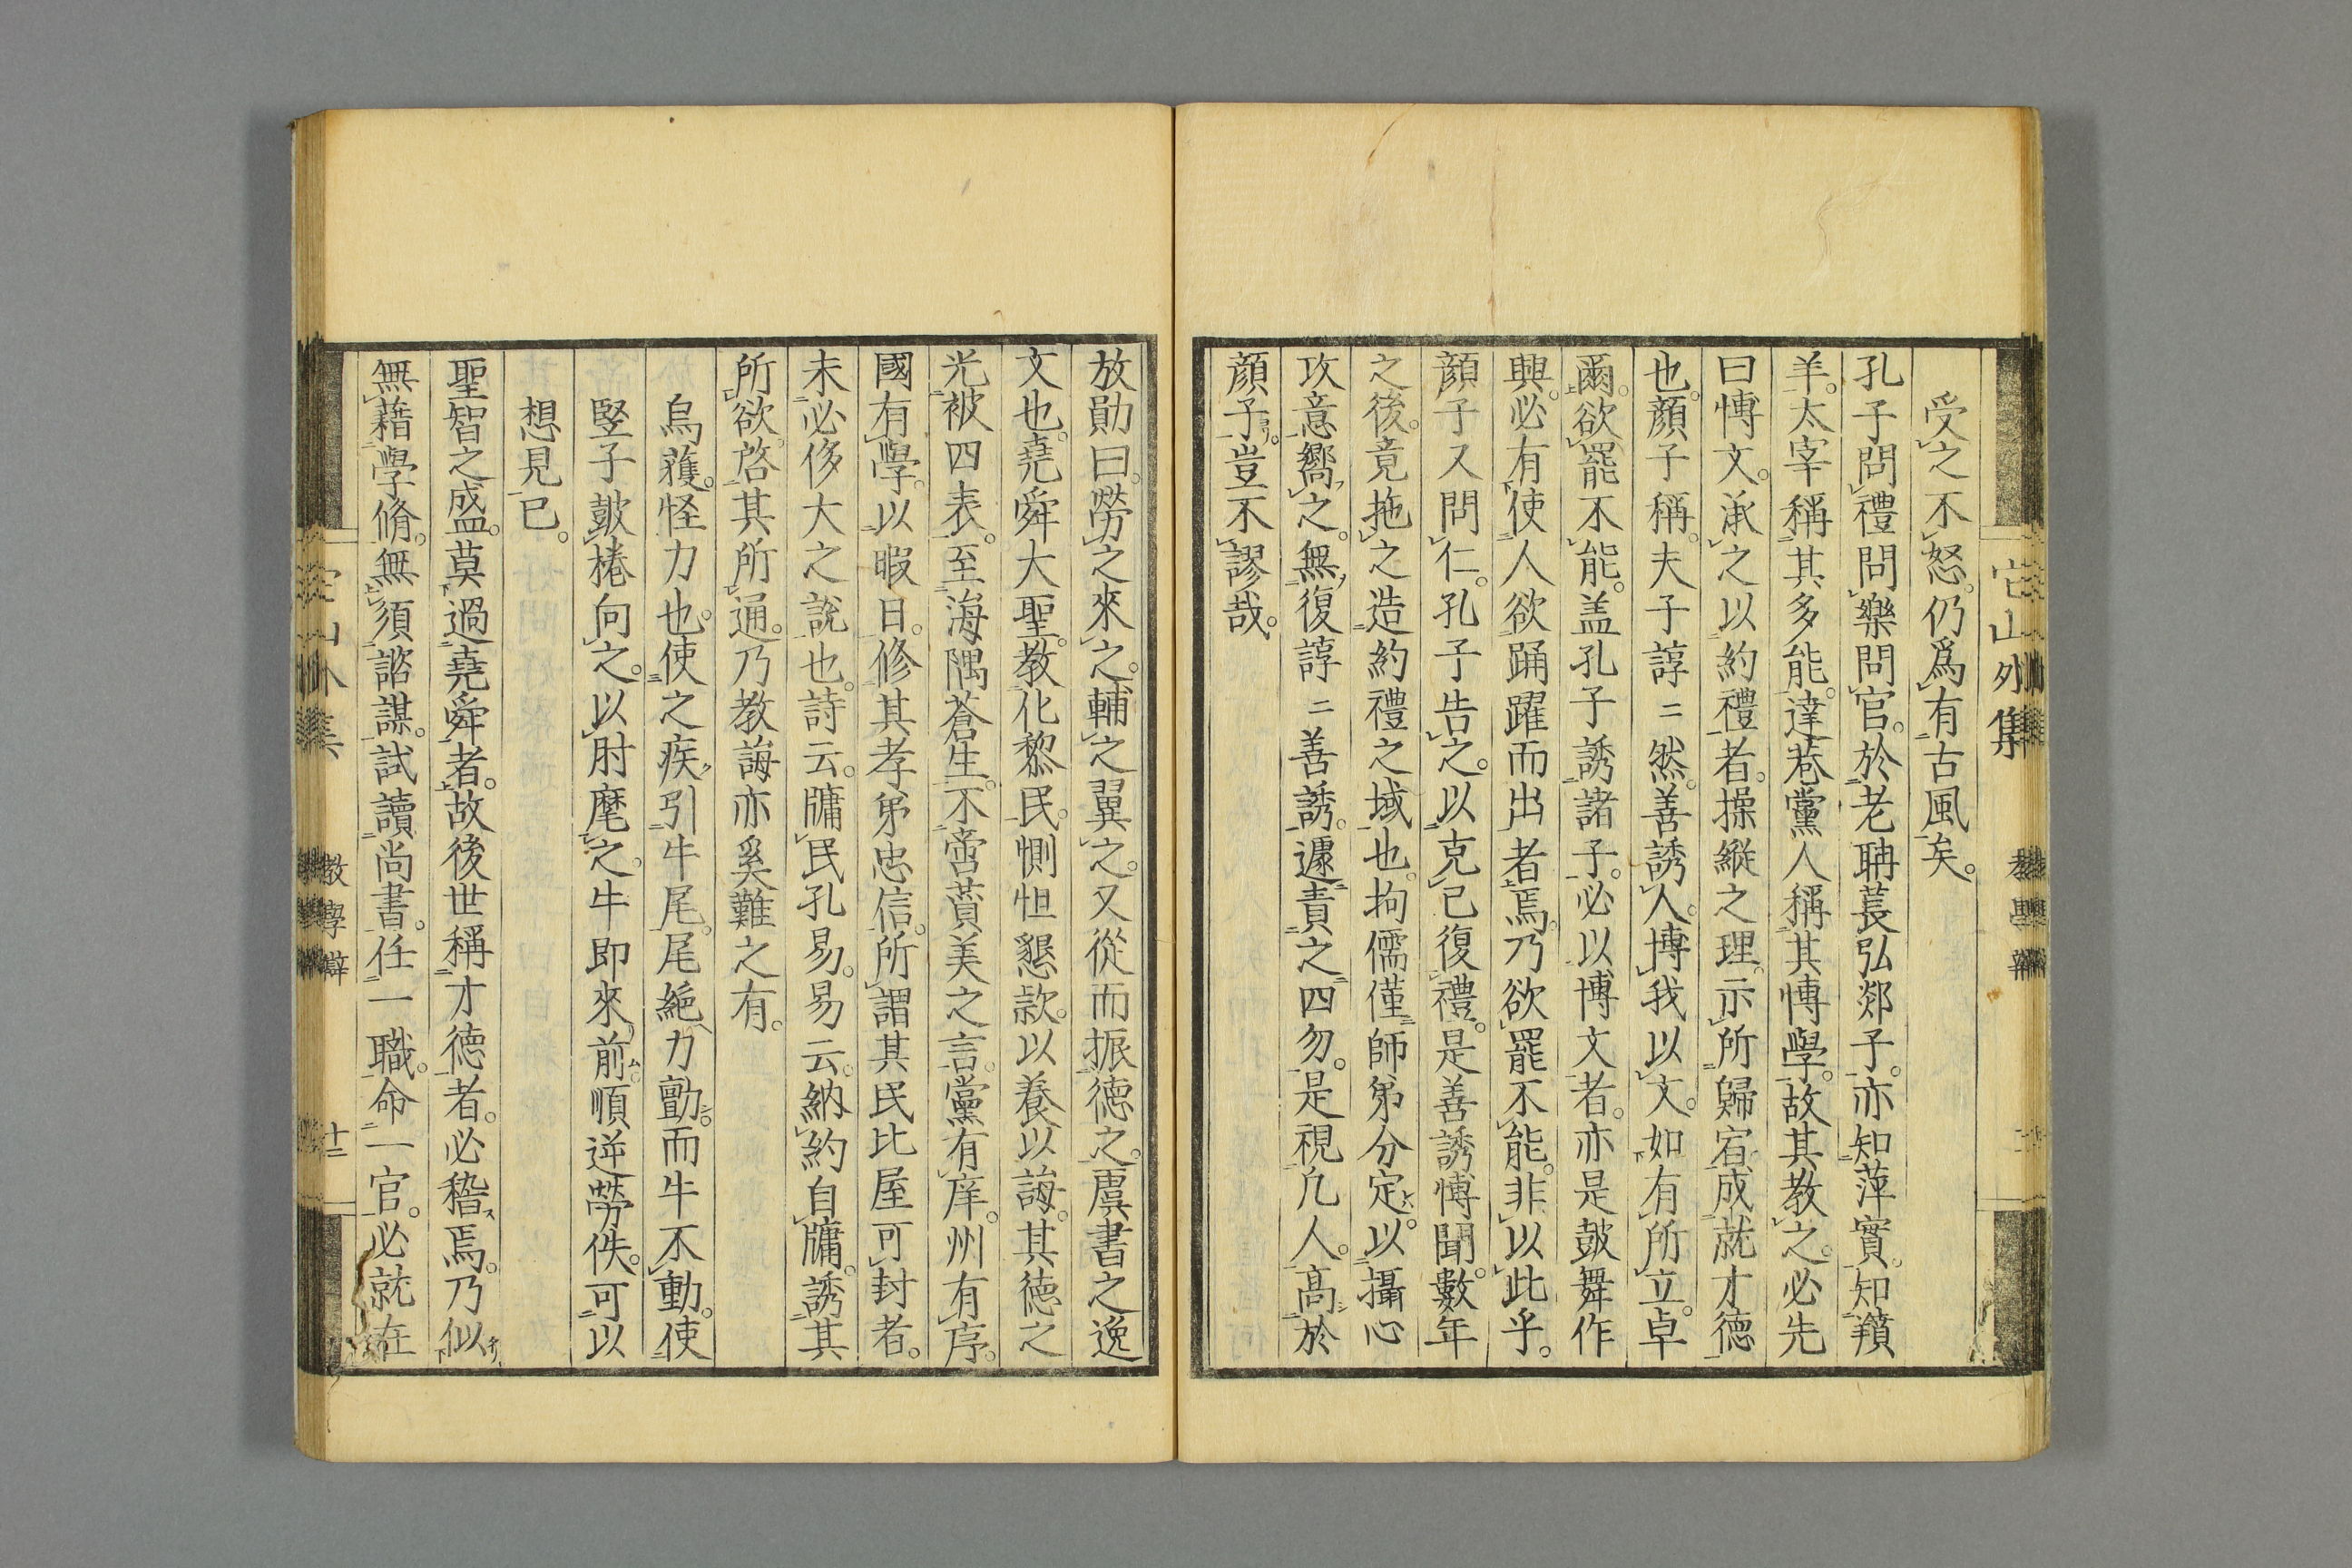 它山外集
受之不怒。仍爲有古風矣。
孔子問禮問樂問官。於老聃萇弘郯子。亦知萍實。知羵
羊。太宰稱其多能。達巷黨人稱其愽學。故其教之。必先
曰愽文。承之以約禮者。操縱之理。示所歸宿。成就才德
也。顔子稱。夫子諄〻然。善誘人。博我以文。如有所立。卓
爾。欲罷不能。盖孔子誘諸子。必以博文者。亦是皷舞作
興。必有使人欲踊躍而出者焉。乃欲罷不能。非以此乎。
顔子又問仁。孔子告之。以克己復禮。是善誘愽聞。數年
之後。竟拖之造約禮之域也。拘儒僅師弟分定。以攝心
攻意嚮之。無復諄〻善誘。遽責之四勿。是視凢人。高於
顔子。豈不謬哉。
放勛曰。勞之來之。輔之翼之。又從而振德之。虞書之逸
文也。堯舜大聖。教化黎民。惻怛懇款。以養以誨。其德之
光。被四表。至海隅蒼生。不啻賛美之言。黨有庠。州有序。
國有學。以暇日。修其孝弟忠信。所謂其民比屋可封者。
未必侈大之說也。詩云。牖民孔易。易云。納約自牖。誘其
所欲。啓其所通。乃教誨亦奚難之有。
烏蒦。怪力也。使之疾引牛尾。尾絶力勯。而牛不動。使
竪子皷棬向之。以肘麾之。牛即來前。順逆勞佚。可以
想見已。
聖智之盛。莫過堯舜者。故後世稱才德者。必稽焉。乃似
無藉學脩。無須諮謀。試讀尚書。任一職。命一官。必就在
教學辯
十二